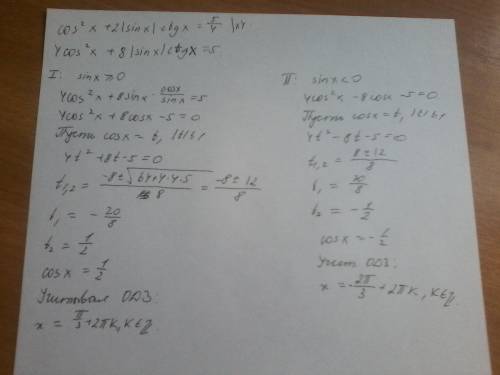 cos²x + 2|sinx| ctgx = 5/4 |×4
4cos²x + 8|sinx| ctgx = 5
I: sinx ≥ 0
4cos²x + 8sinx · cosx/sinx = 5
4cos²x + 8cosx - 5 = 0
Пусть cosx = t, |t| ≤ 1
4t² + 8t - 5 = 0
t₁,₂ = (-8 ± √(64 + 4·4·5))/8 = (-8 ± 12)/8
t₁ = -20/8
t₂ = 1/2
cosx = 1/2
Учитывая ОДЗ:
x = π/3 + 2πk, k∈Z
II: sinx < 0
4cos²x - 8cosx - 5 = 0
Пусть cosx = t, |t| ≤ 1
4t² - 8t - 5 = 0
t₁,₂ = (8 ± 12)/8
t₁ = 20/8
t₂ = -1/2
cosx = -1/2
ОДЗ:
x = -2π/3 + 2πk, k∈Z